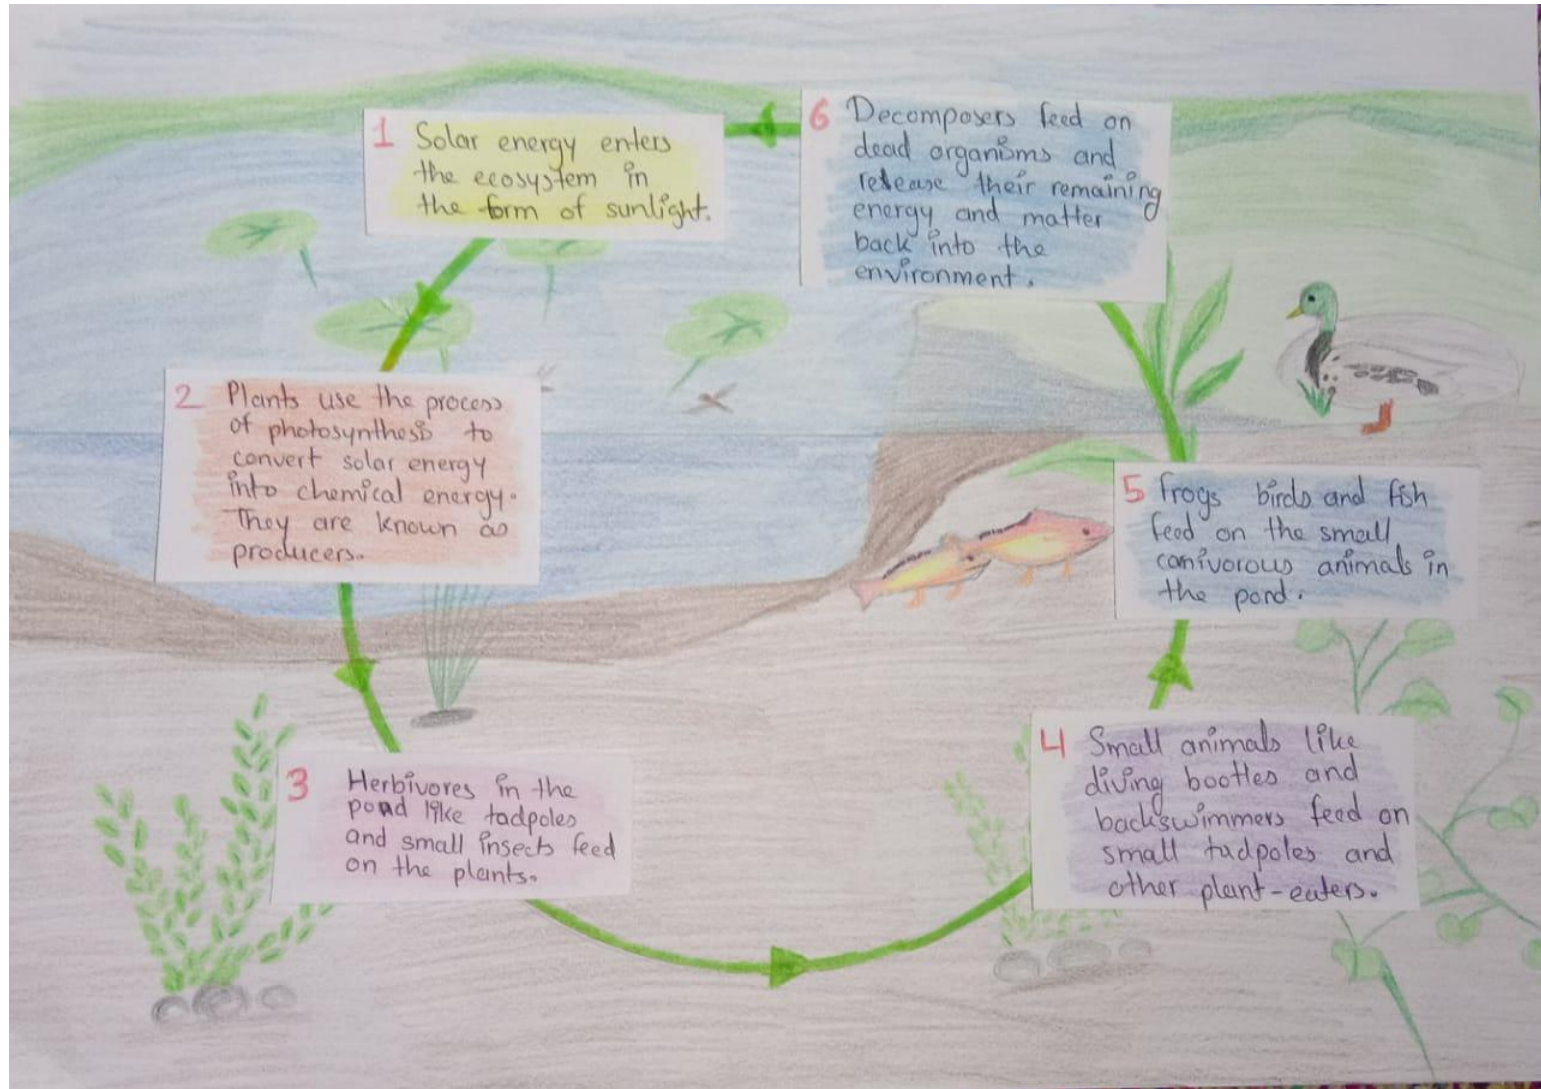 1 Solar energy enters
the ecosystem in
the form of sunlight.
2 Plants use the process
of photosynthesis to
convert solar energy
into chemical energy.
They are known as
producers.
3 Herbivores in the
pond like tadpoles
and small insects feed
on the plants.
4 Small animals like
diving bootles and
backswimmers feed on
small tadpoles and
other plant-eaters.
5 frogs birds and fish
feed on the small
canivorous animals in
the pond.
6 Decomposers feed on
dead organisms and
release their remaining
energy and matter
back into the
environment.